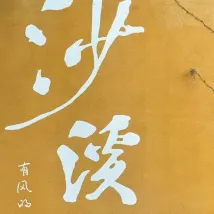 沙溪
有风的